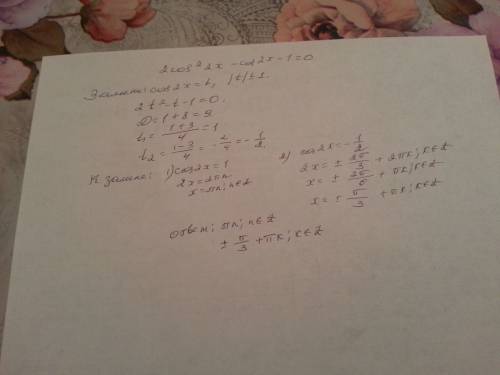 2cos² 2x - cos 2x - 1 = 0
Замена: cos 2x = t, |t| ≤ 1.
2t² - t - 1 = 0.
D = 1 + 8 = 9.
t₁ = (1+3)/4 = 1
t₂ = (1-3)/4 = -2/4 = -1/2.
К замене: 1) cos 2x = 1
2x = 2πn.
x = πn; n ∈ Z
2) cos 2x = -1/2
2x = ± 2π/3 + 2πk; k ∈ Z
x = ± 2π/6 + πk; k ∈ Z
x = ± π/3 + πk; k ∈ Z
ответ: πn; n ∈ Z
± π/3 + πk; k ∈ Z